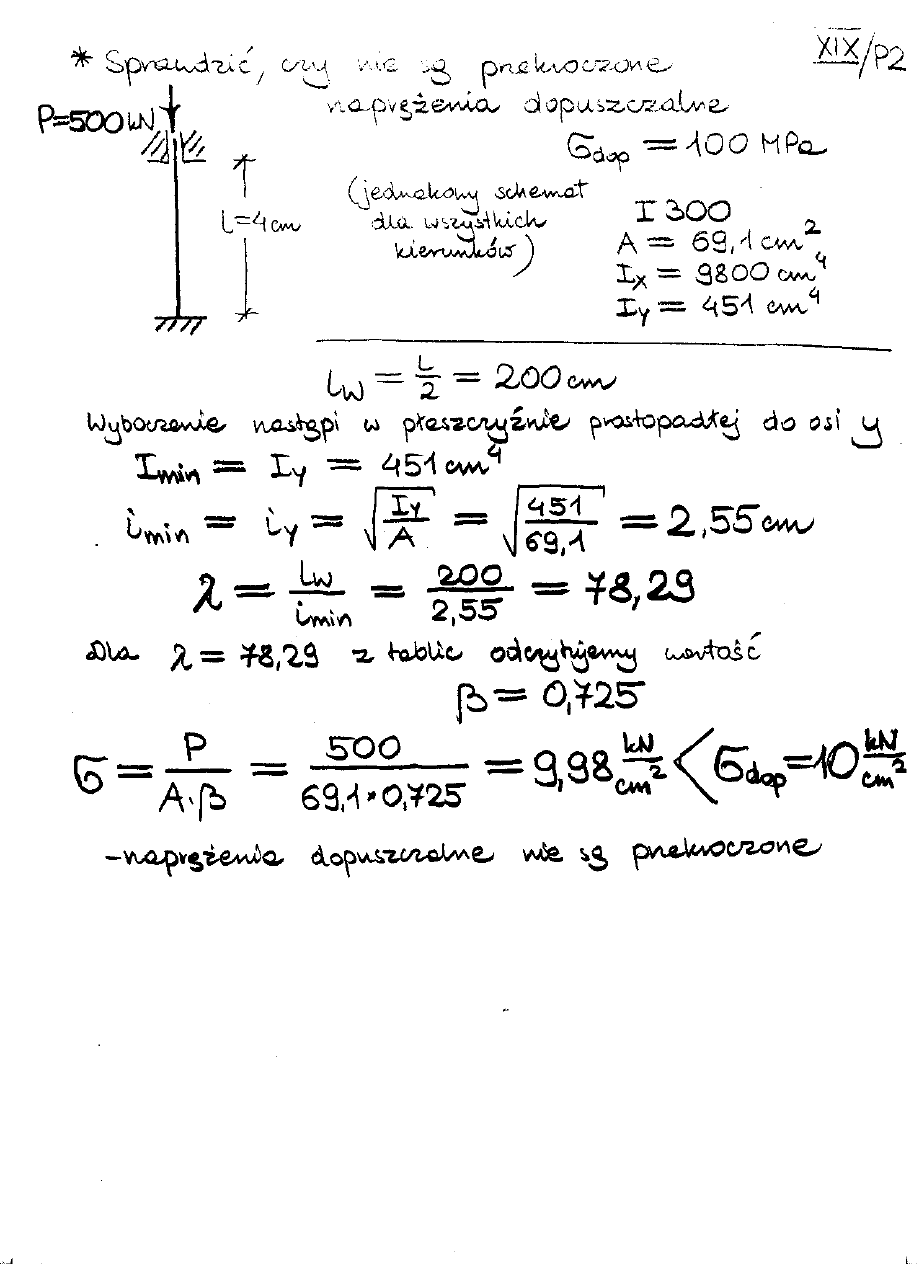 * Sprawdzić, czy nie są przekroczone
XIX/P2
naprężenia dopuszczalne
P=500kN
σdop = 100 MPa
(jednakowy schemat
dla wszystkich
kierunków)
L=4cm
I 300
A = 69,1 cm²
Ix = 9800 cm⁴
Iy = 451 cm⁴
Lw = L/2 = 200 cm
Wyboczenie nastąpi w płaszczyźnie prostopadłej do osi y
Imin = Iy = 451 cm⁴
imin = iy = √(Iy/A) = √(451/69,1) = 2,55 cm
λ = Lw/imin = 200/2,55 = 78,29
Dla λ = 78,29 z tablic odczytujemy wartość
β = 0,725
σ = P/(A·β) = 500/(69,1*0,725) = 9,98 kN/cm² < σdop = 10 kN/cm²
- naprężenia dopuszczalne nie są przekroczone